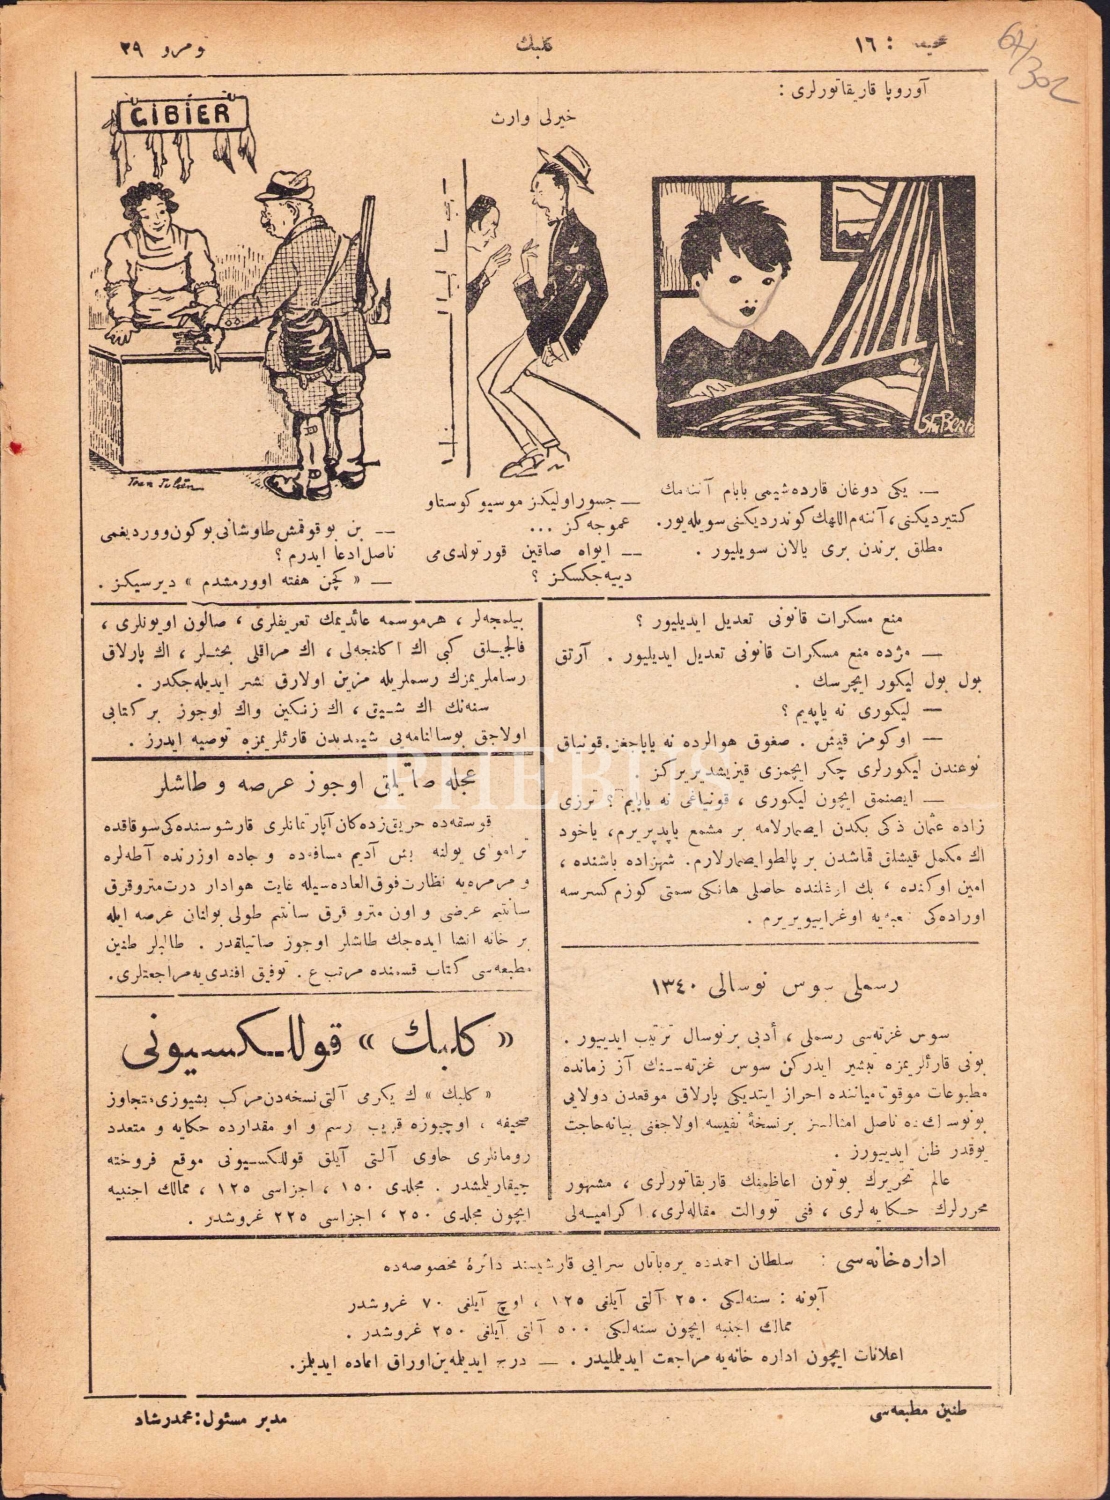 صحیفه : ١٦
كلبك
نومرو ٢٩
64/302
آوروپا قاریقاتورلری :
خیرلی وارث
GIBIER
— یكی دوغان قارده‌شیمی بابام آننه‌مك
كتیردیكنی، آننه‌م اللهك كوندردیكنی سویله‌یور.
مطلق برندن بری یالان سویلیور .
— جسور اولیكز موسیو كوستاو
عموجه‌كز ...
— ایواه صاقین قورتولدی می
دییه‌جكسكز ؟
— بن بو قوقمش طاوشانی بوكون ووردیغمی
ناصل ادعا ایدرم ؟
— « كچن هفته اوورمشدم » دیرسیكز .
منع مسكرات قانونی تعدیل ایدیلیور ؟
— مژده منع مسكرات قانونی تعدیل ایدیلیور . آرتق
بول بول لیكور ایچرسك .
— لیكوری نه یاپه‌یم ؟
— اوكومز قیش . صغوق هوالرده نه یاپاجغز. قونیاق
نوعندن لیكورلری چكر ایچمزی قیزیشدیریرز .
— ایصنمق ایچون لیكوری ، قونیاغی نه یاپایم ؟ ترزی
زاده عثمان ذكی بكدن ایصمارلامه بر مشمع یاپدیریرم، یاخود
اك مكمل قیشلق قماشدن بر پالطو ایصمارلارم. شهزاده باشنده ،
امین اوكنده ، بك اوغلنده حاصلی هانكی سمتی كوزم كسرسه
اوراده‌كی شعبه‌یه اوغراییویریرم .
رسملی سوس نوسالی ١٣٤٠
سوس غزته‌سی رسملی ، أدبی بر نوسال ترتیب ایدییور .
بونی قارئلریمزه تبشیر ایدركن سوس غزته‌سنك آز زمانده
مطبوعات موقوته میاننده احراز ایتدیكی پارلاق موقعدن دولایی
بو نوسالك ده ناصل امثالسز بر نسخهٔ نفیسه اولاجغنی بیانه حاجت
یوقدر ظن ایدییورز .
عالم تحریرك بوتون اعاظمنك قاریقاتورلری ، مشهور
محررلرك حكایه‌لری ، فنی تووالت مقاله‌لری، اكرامیه‌لی
بیلمجه‌لر ، هر موسمه عائد یمك تعریفلری ، صالون اویونلری ،
فالجیلق كبی اك اكلنجه‌لی ، اك مراقلی بحثلر ، اك پارلاق
رساملریمزك رسملریله مزین اولارق نشر ایدیله‌جكدر .
سنه‌نك اك شیق ، اك زنكین واك اوجوز بر كتابی
اولاجق بوسالنامه‌یی شیمدیدن قارئلریمزه توصیه ایدرز .
عجله صاتیلق اوجوز عرصه و طاشلر
قوسقه‌ده حریق‌زده‌كان آپارتمانلری قارشوسنده‌كی سوقاقده
تراموای یولنه بش آدیم مسافه‌ده و جاده اوزرنده آطه‌لره
و مرمره‌یه نظارت فوق‌العاده‌سیله غایت هوادار درت مترو قرق
سانتیم عرضی و اون مترو قرق سانتیم طولی بولنان عرصه ایله
بر خانه انشا ایده‌جك طاشلر اوجوز صاتیلقدر . طالبلر طنین
مطبعه‌سی كتاب قسمنده مرتب ع . توفیق افندی‌یه مراجعتلری.
« كلبك » قوللكسیونی
« كلبك » ك یكرمی آلتی نسخه‌دن مركب بشیوزی متجاوز
صحیفه ، اوچیوزه قریب رسم و او مقدارده حكایه و متعدد
رومانلری حاوی آلتی آیلق قوللكسیونی موقع فروخته
چیقاریلمشدر . مجلدی ١٥٠ ، اجزاسی ١٢٥ ، ممالك اجنبیه
ایچون مجلدی ٢٥٠ ، اجزاسی ٢٢٥ غروشدر .
اداره‌خانه‌سی : سلطان احمدده یره‌باتان سرایی قارشیسنده دائرهٔ مخصوصه‌ده
آبونه : سنه‌لكی ٢٥٠ آلتی آیلغی ١٢٥ ، اوچ آیلغی ٧٠ غروشدر
ممالك اجنبیه ایچون سنه‌لكی ٥٠٠ آلتی آیلغی ٢٥٠ غروشدر .
اعلانات ایچون اداره خانه‌یه مراجعت ایدیلملیدر . — درج ایدیلمه‌ین اوراق اعاده ایدیلمز.
طنین مطبعه‌سی
مدیر مسئول : محمد رشاد
PHEBUS